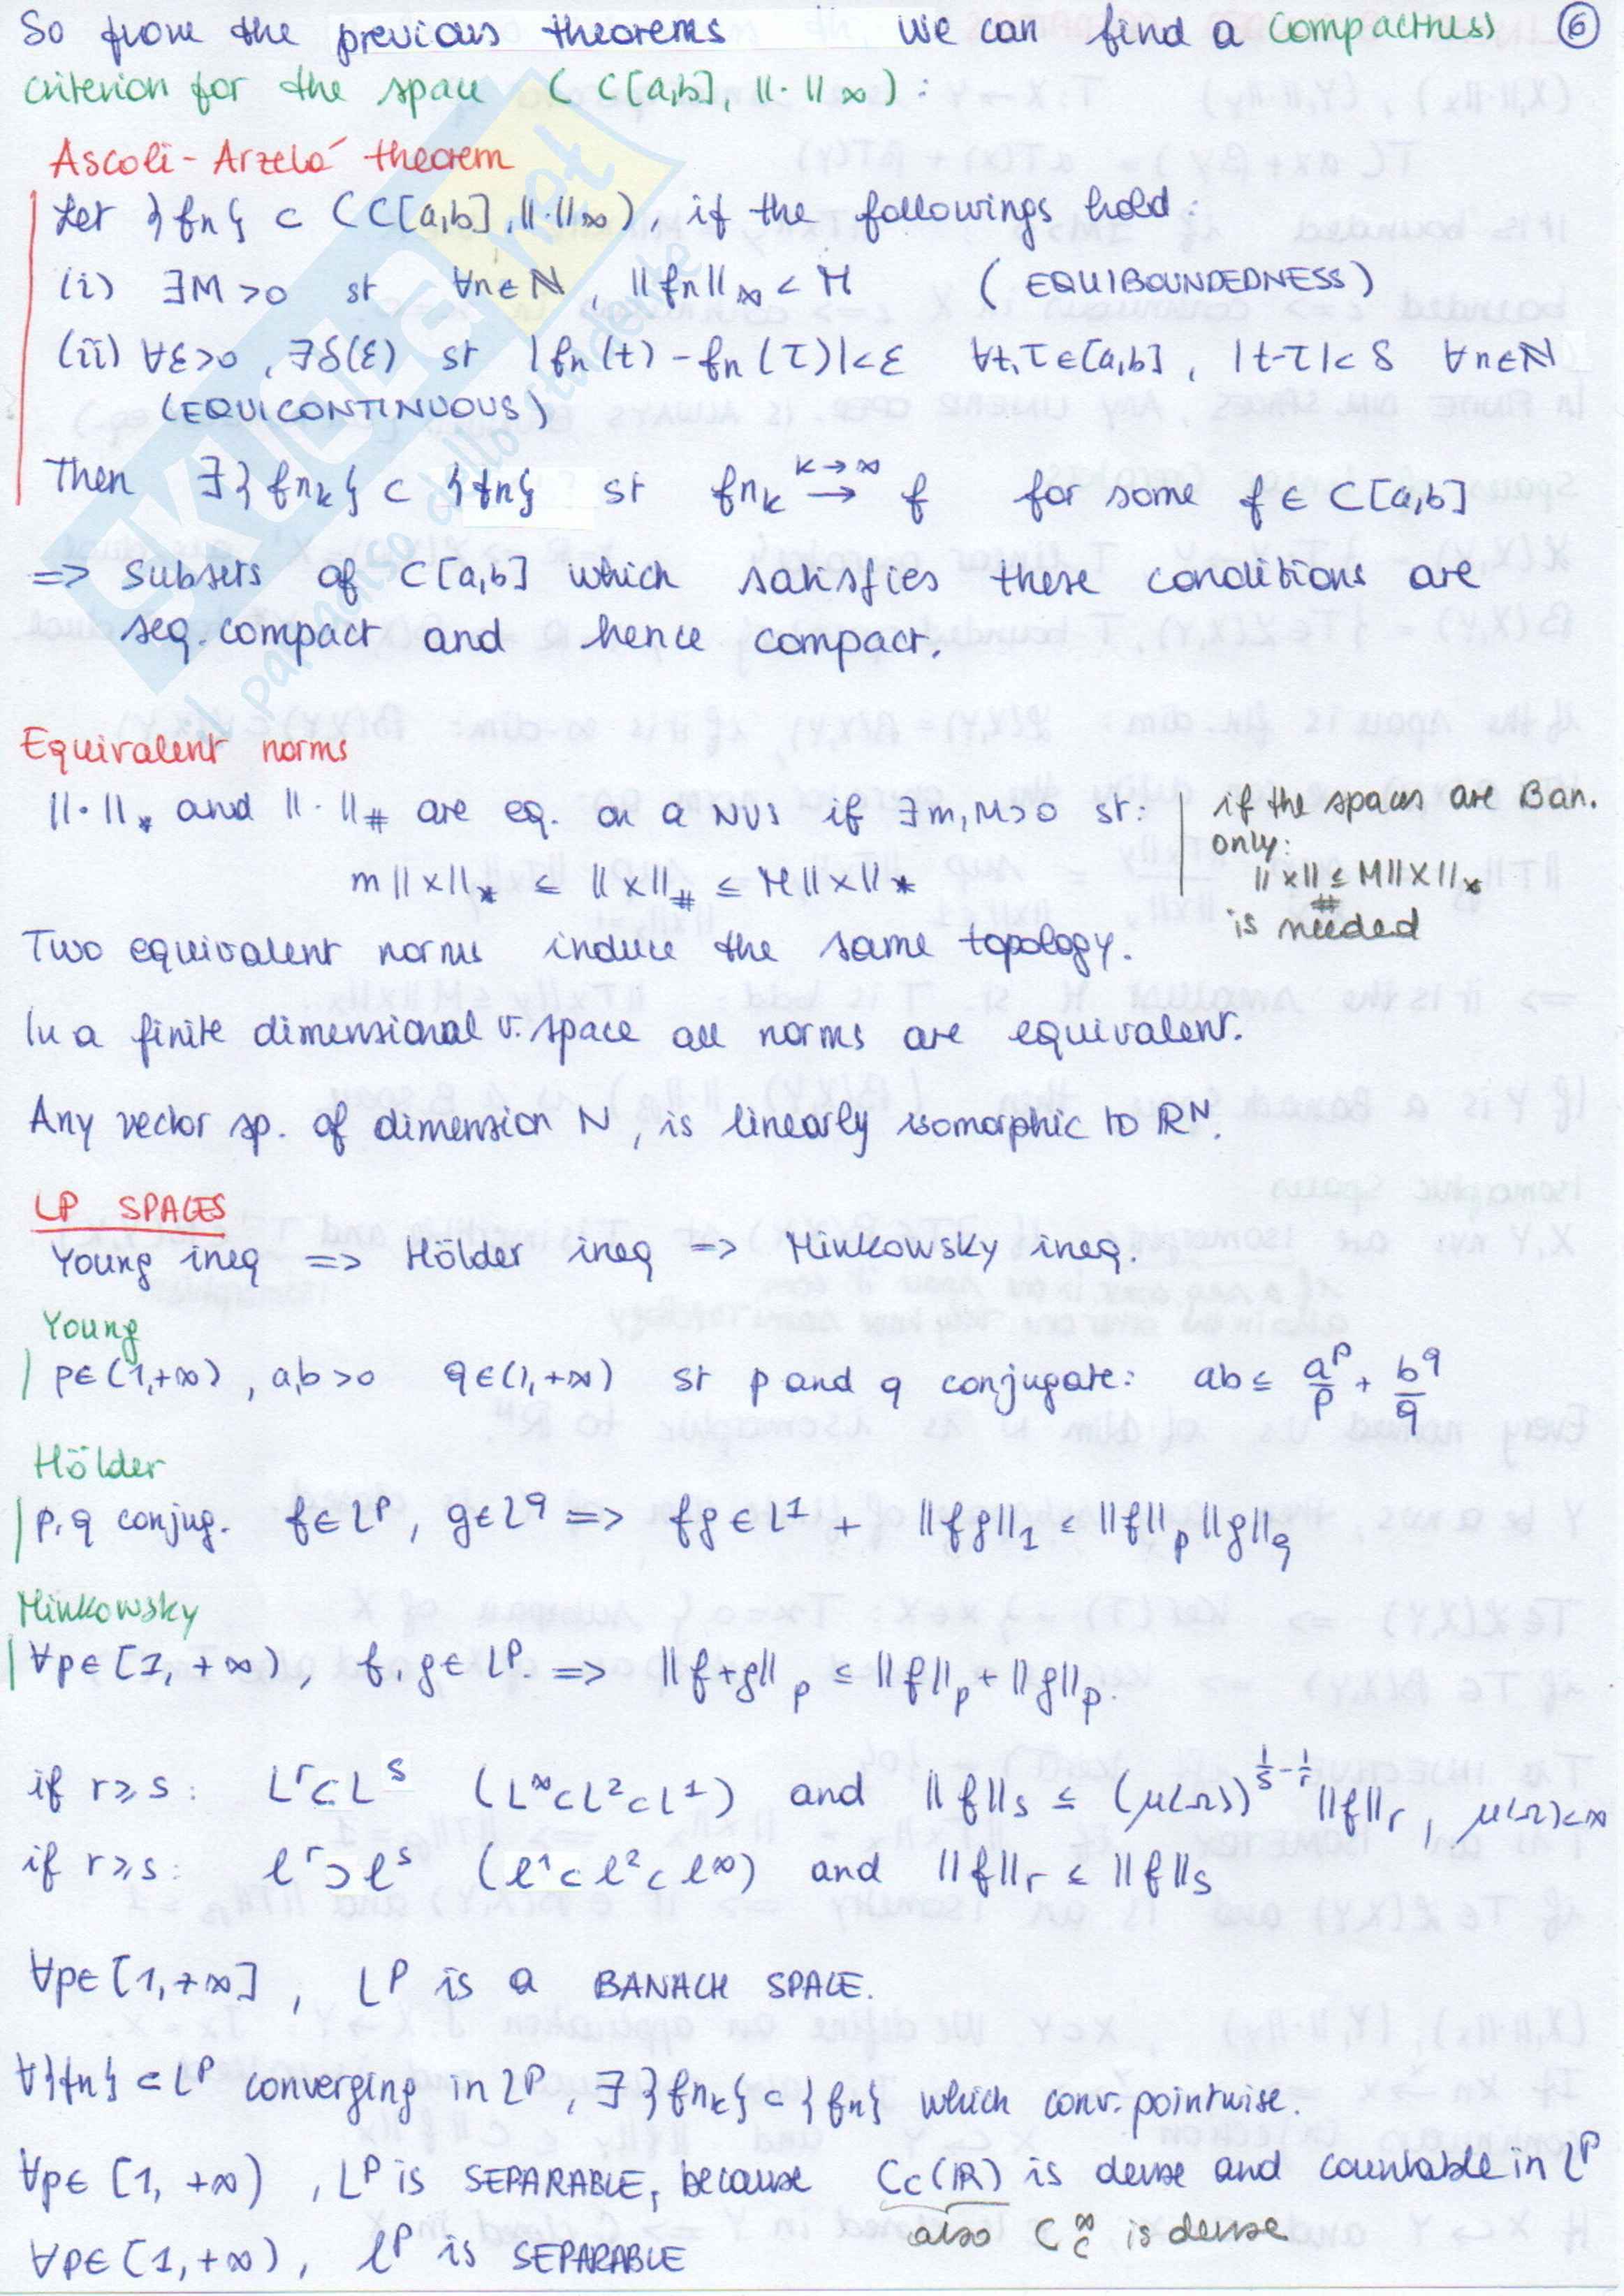 So from the previous theorems we can find a compactness ⑥
criterion for the space ( C[a,b], ||·||∞ ) :
Ascoli-Arzelá theorem
Let }fn{ ⊂ (C[a,b], ||·||∞), if the followings hold:
(i) ∃M>0 st ∀n∈ℕ, ||fn||∞ < M (EQUIBOUNDEDNESS)
(ii) ∀ε>0, ∃δ(ε) st |fn(t) - fn(τ)|<ε ∀t,τ∈[a,b], |t-τ|<δ ∀n∈ℕ
(EQUICONTINUOUS)
Then ∃ }fnk{ ⊂ }fn{ st fnk →^{k→∞} f for some f ∈ C[a,b]
=> Subsets of C[a,b] which satisfies these conditions are
seq. compact and hence compact.
Equivalent norms
||·||* and ||·||# are eq. on a NVS if ∃m,M>0 st:
m||x||* ≤ ||x||# ≤ M||x||*
if the spaces are Ban.
only:
||x||# ≤ M||x||*
is needed
Two equivalent norms induce the same topology.
In a finite dimensional v. space all norms are equivalent.
Any vector sp. of dimension N, is linearly isomorphic to ℝᴺ.
LP SPACES
Young ineq => Hölder ineq => Minkowsky ineq.
Young
p∈(1,+∞), a,b>0 q∈(1,+∞) st p and q conjugate: ab ≤ a^p/p + b^q/q
Hölder
p,q conjug. f∈L^p, g∈L^q => fg∈L^1 + ||fg||_1 ≤ ||f||_p ||g||_q
Minkowsky
∀p∈[1,+∞), f,g∈L^p. => ||f+g||_p ≤ ||f||_p + ||g||_p.
if r≥s: L^r⊂L^s (L^∞⊂L^2⊂L^1) and ||f||_s ≤ (μ(Ω))^{1/s-1/r} ||f||_r, μ(Ω)<∞
if r≥s: l^r⊃l^s (l^1⊂l^2⊂l^∞) and ||f||_r ≤ ||f||_s
∀p∈[1,+∞], L^p is a BANACH SPACE.
∀}fn{ ⊂ L^p converging in L^p, ∃ }fnk{ ⊂ }fn{ which conv. pointwise.
∀p∈[1,+∞), L^p is SEPARABLE, because Cc(ℝ) is dense and countable in L^p
also C_c^∞ is dense
∀p∈(1,+∞), l^p is SEPARABLE